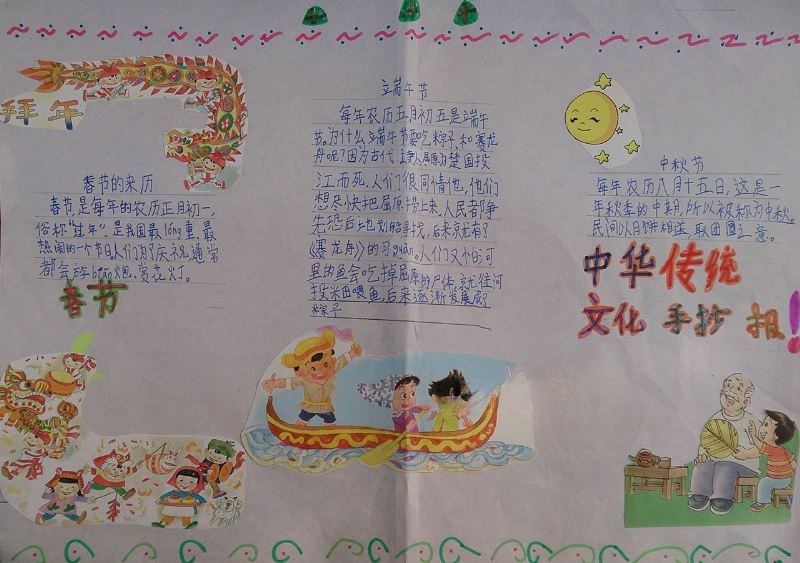 拜年
春节的来历
春节,是每年的农历正月初一,
俗称“过年”,是我国最lóng重、最
热闹的一个节日人们为了庆祝,通常
都会放biān炮、赏花灯。
春节
立端午节
每年农历五月初五是立端午
节。为什么立端午节要吃粽子,和赛龙
舟呢?因为古代
江而死,人们很同情他,他们
想尽快把屈原捞上来,人民都争
先恐后地划船寻找,后来就有了
《赛龙舟》的习guàn。人们又怕河
里的鱼会吃掉屈原的尸体,就往河
投米田喂鱼,后来逐渐发展成了
粽子
中秋节
每年农历八月十五日,这是一
年秋季的中期,所以被称为中秋。
民间以月饼相送,取团圆之意。
中华传统
文化 手抄 报!